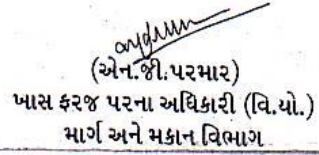 (એન.જી.પરમાર)
ખાસ ફરજ પરના અધિકારી (વિ.યો.)
માર્ગ અને મકાન વિભાગ